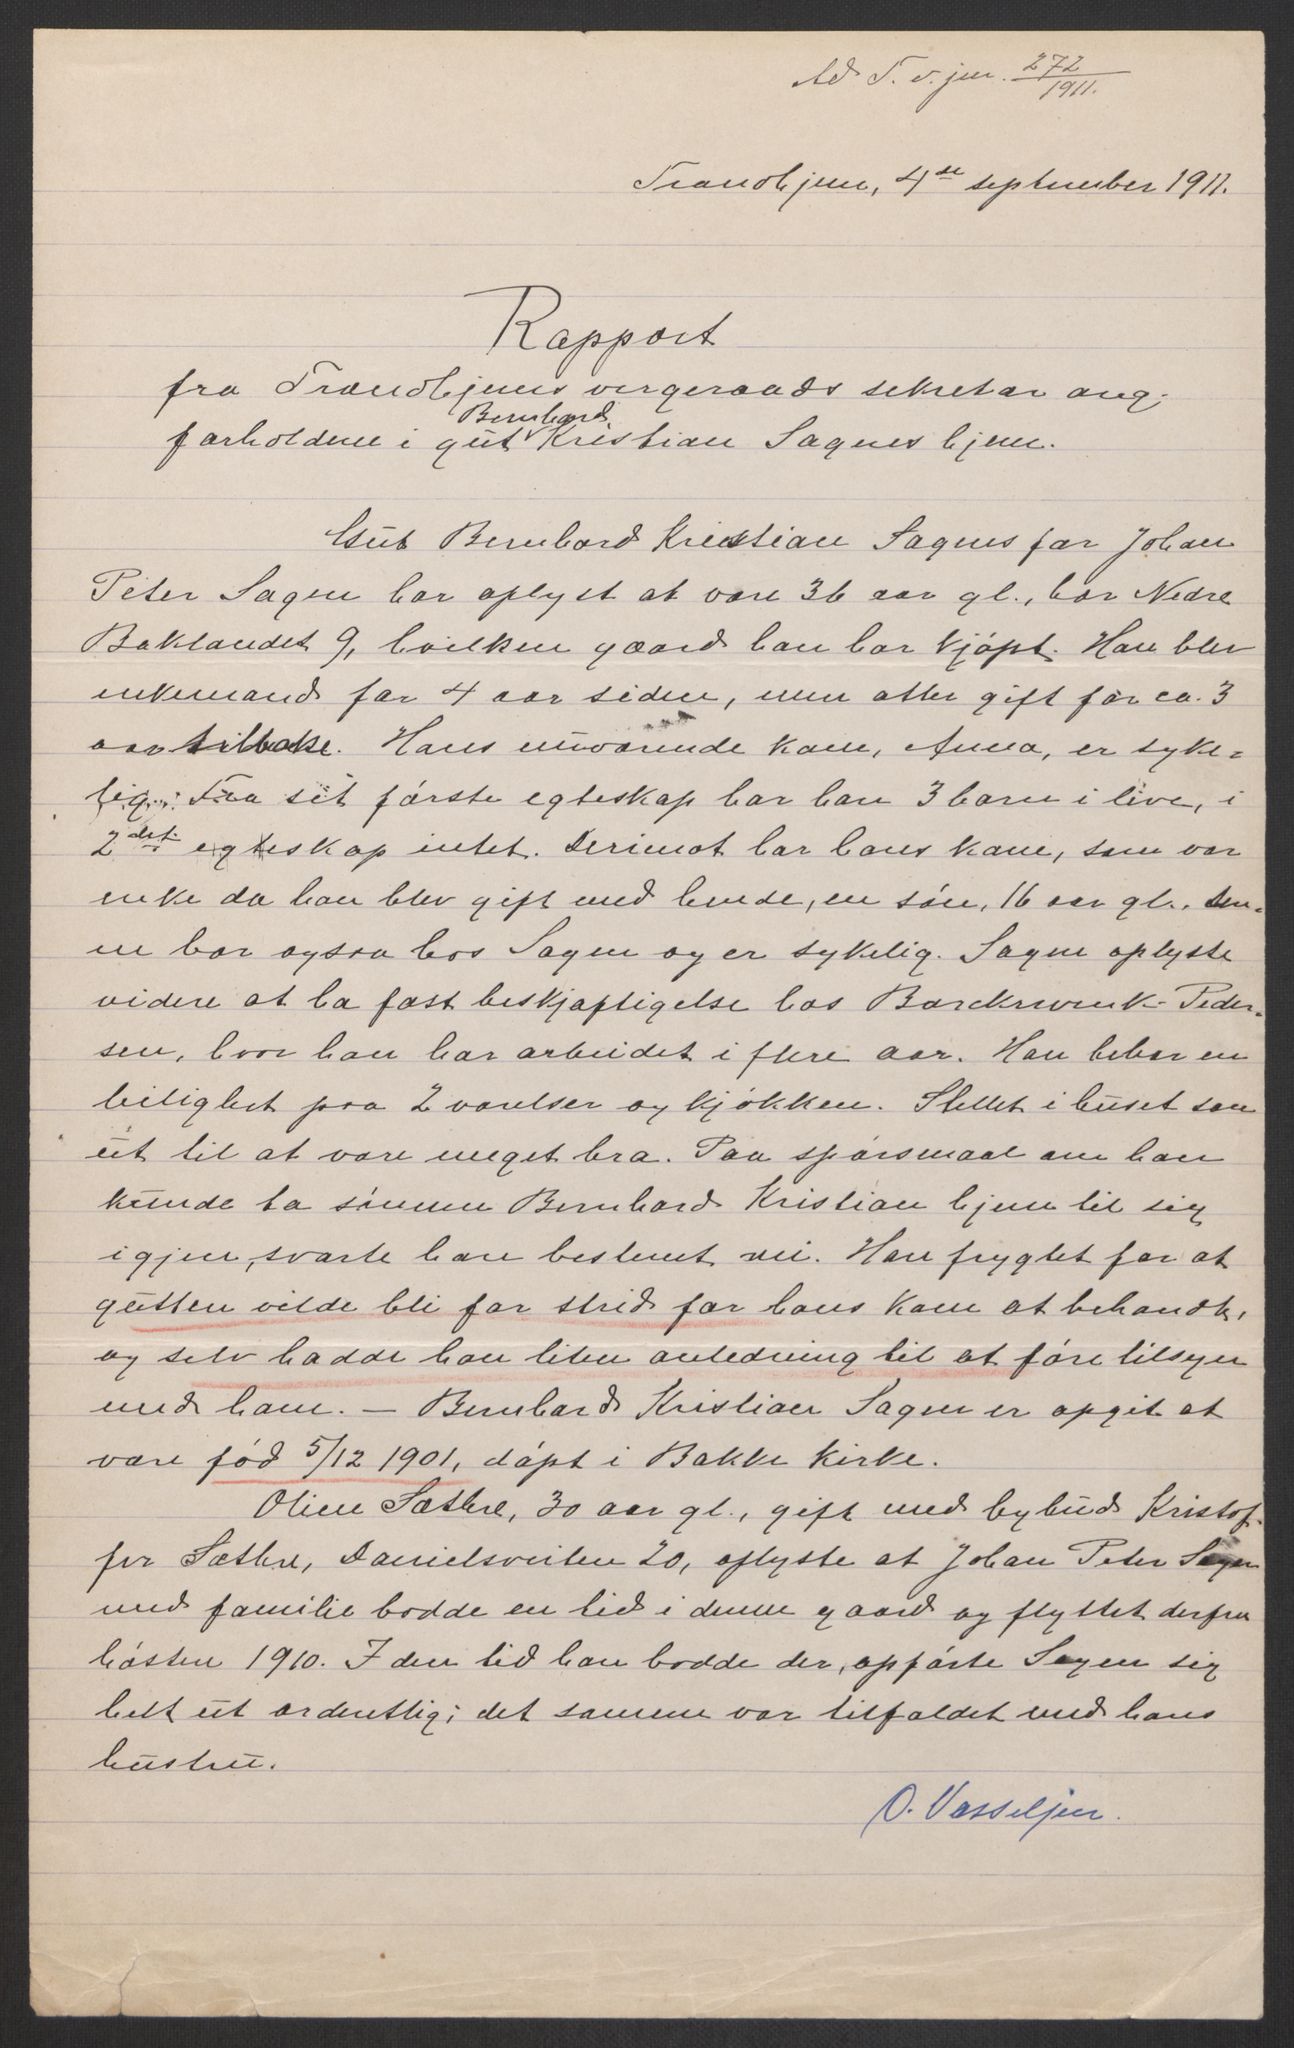 Ad T. v. jnr. 272/1911.
Trondhjem, 4de september 1911.
Rapport
fra Trondhjems vergeraads sekretær ang.
forholdene i gut Bernhard Kristian Sagens hjem.
Gut Bernhard Kristian Sagens far Johan
Peter Sagen har oplyst at være 36 aar gl., bor Nedre
Baklandet 9, hvilken gaard han har kjøpt. Han blev
enkemand for 4 aar siden, men atter gift for ca. 3
aar tilbake. Hans nuværende kone, Anna, er syke-
lig. Fra sit første egteskap har han 3 barn i live, i
2det egteskap intet. Derimot har hans kone, som var
enke da han blev gift med hende, en søn, 16 aar gl., den-
ne bor ogsaa hos Sagen og er sykelig. Sagen oplyste
videre at ha fast beskjæftigelse hos Peder-
sen, hvor han har arbeidet i flere aar. Han bebor en
leilighet paa 2 værelser og kjøkken. Stellet i huset saa
ut til at være meget bra. Paa spørsmaal om han
kunde ta sønnen Bernhard Kristian hjem til sig
igjen, svarte han bestemt nei. Han frygtet for at
gutten vilde bli for strid for hans kone at behandle,
og selv hadde han liten anledning til at føre tilsyn
med ham. — Bernhard Kristian Sagen er opgit at
være fød 5/12 1901, døpt i Bakke kirke.
Oline Sæthre, 30 aar gl., gift med bybud Kristof-
fer Sæthre, Danielsveiten 20, oplyste at Johan Peter Sagen
med familie bodde en tid i denne gaard og flyttet derfra
høsten 1910. I den tid han bodde der, opførte Sagen sig
helt ut ordentlig; det samme var tilfældet med hans
hustru.
O. Vasseljen.